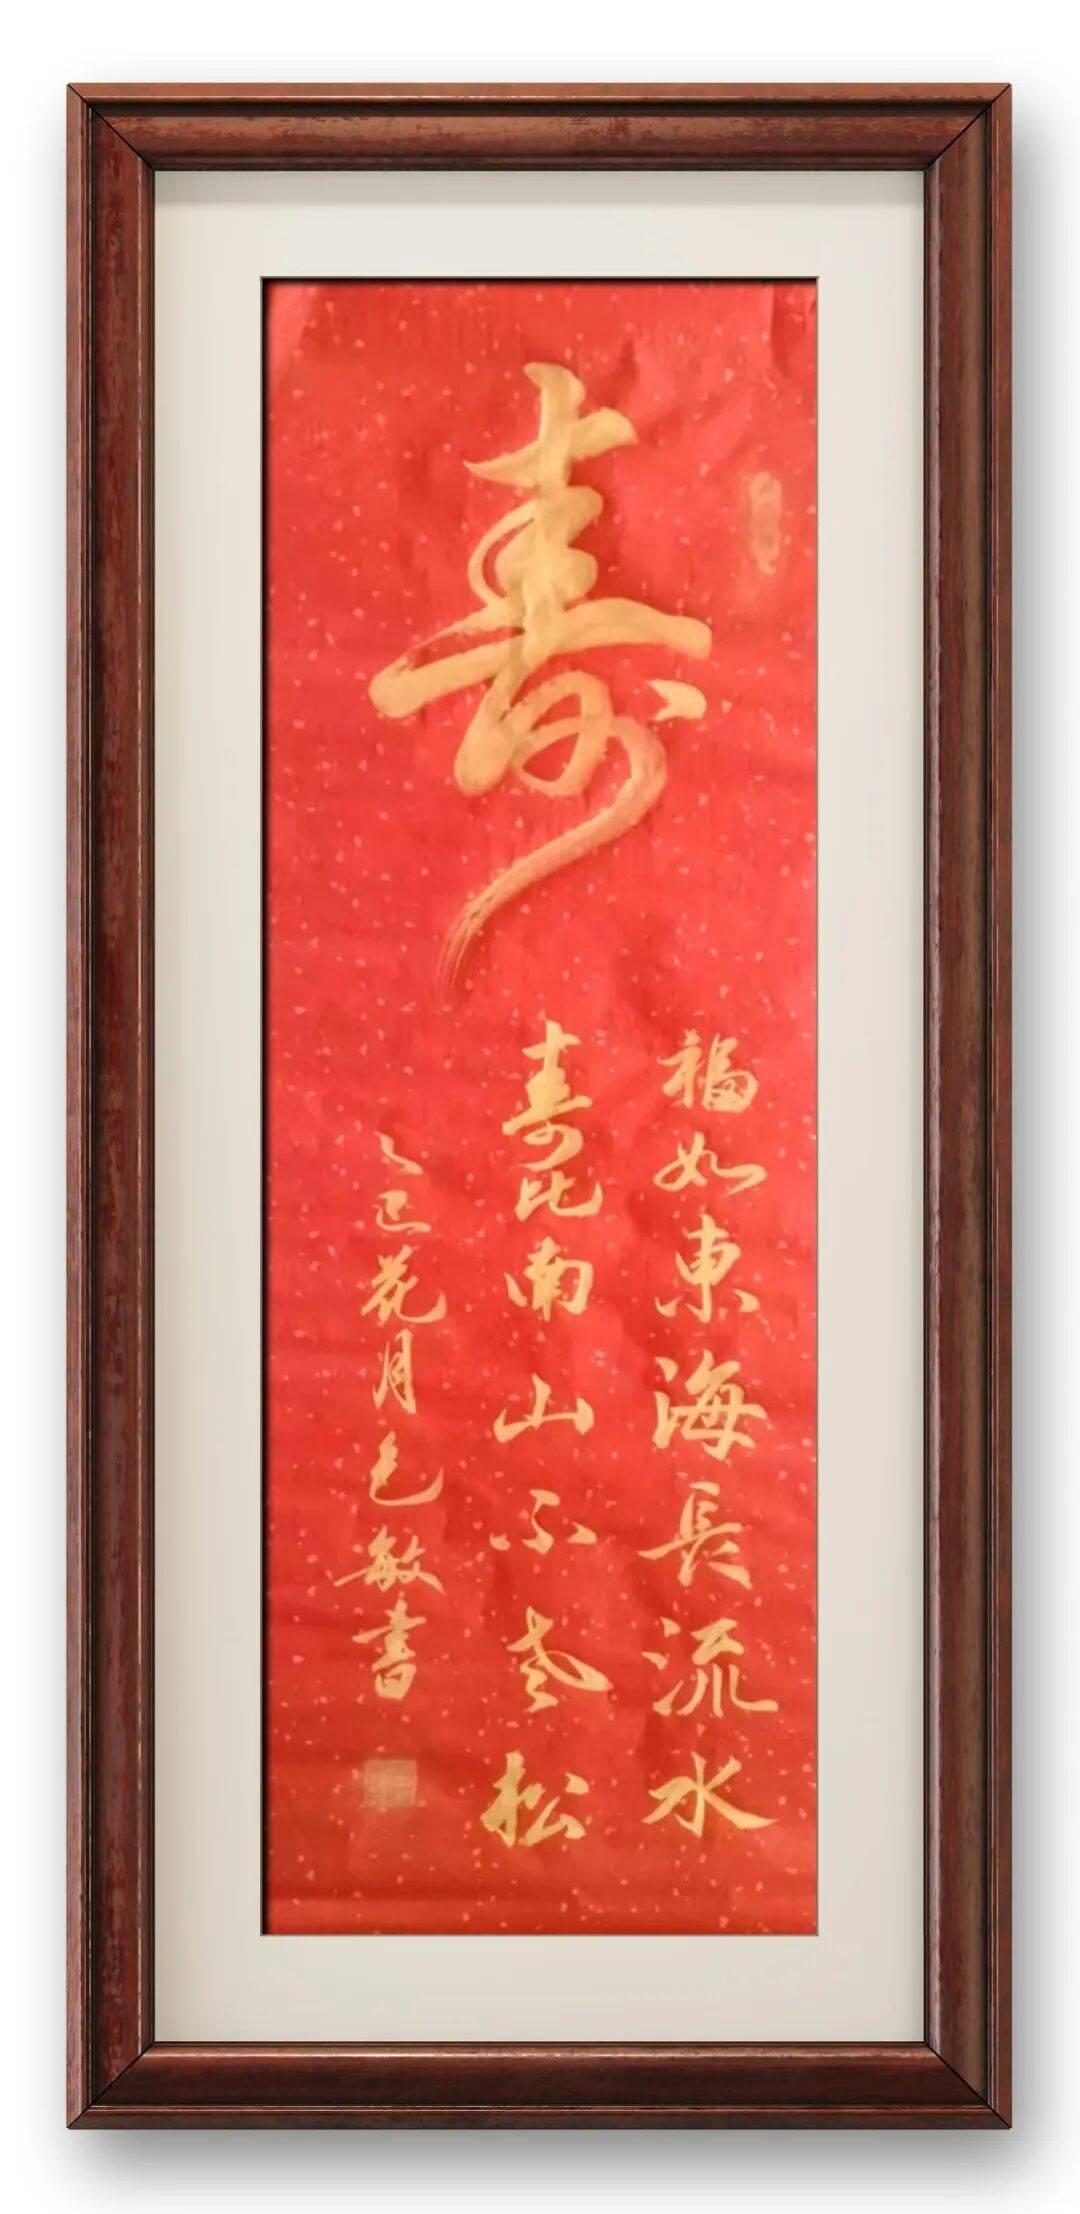 寿
福如東海長流水
寿比南山不老松
乙巳花月色敏書